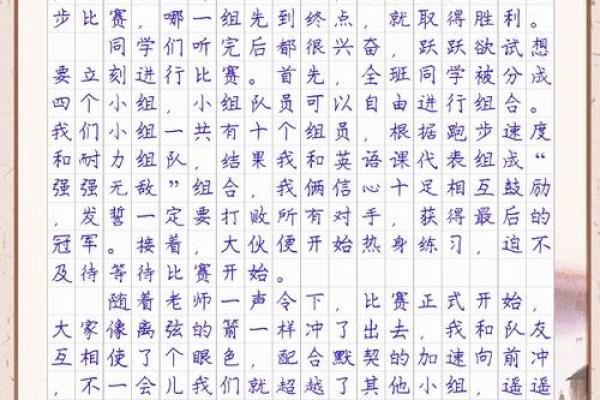 步比赛，哪一组先到终点，就取得胜利。
同学们听完后都很兴奋，跃跃欲试想
要立刻进行比赛。首先，全班同学被分成
四个小组，小组队员可以自由进行组合。
我们小组一共有十个组员，根据跑步速度
和耐力组队，结果我和英语课代表组成“
强强无敌”组合，我俩信心十足相互鼓励
，发誓一定要打败所有对手，获得最后的
冠军。接着，大伙便开始热身练习，迫不
及待等待比赛开始。
随着老师一声令下，比赛正式开始，
大家像离弦的箭一样冲了出去，我和队友
互相使了个眼色，配合默契的加速向前冲
，不一会儿我们就超越了其他小组，遥遥